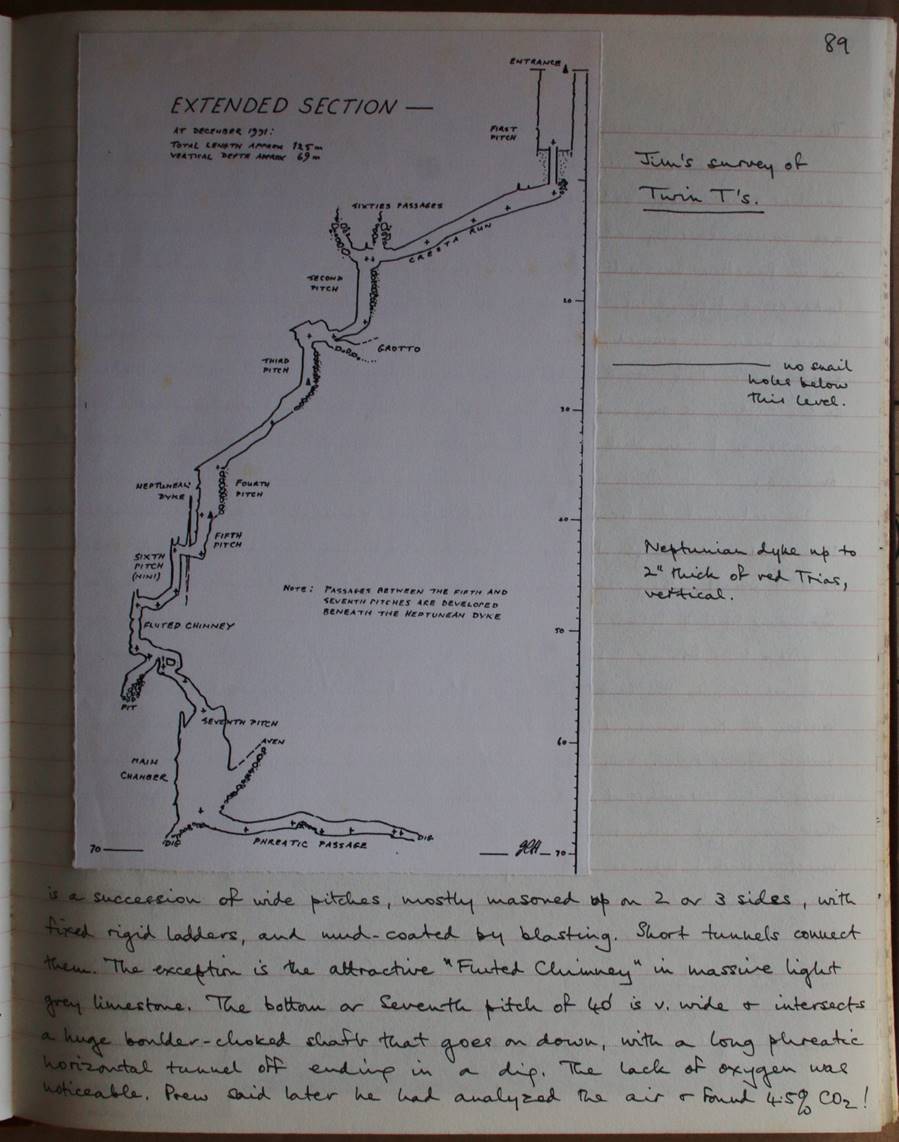 89
ENTRANCE
EXTENDED SECTION —
AT DECEMBER 1991:
TOTAL LENGTH APPROX 125m
VERTICAL DEPTH APPROX 69m
FIRST
PITCH
Jim's survey of
Twin T's.
SIXTIES PASSAGES
CRESTA RUN
SECOND
PITCH
20
GROTTO
THIRD
PITCH
no snail
holes below
this level.
30
NEPTUNEAN
DYKE
FOURTH
PITCH
40
FIFTH
PITCH
SIXTH
PITCH
(MINI)
Neptunian dyke up to
2" thick of red Trias,
vertical.
NOTE: PASSAGES BETWEEN THE FIFTH AND
SEVENTH PITCHES ARE DEVELOPED
BENEATH THE NEPTUNEAN DYKE
FLUTED CHIMNEY
50
PIT
SEVENTH PITCH
AVEN
60
MAIN
CHAMBER
DIG
PHREATIC PASSAGE
DIG
70
70
is a succession of wide pitches, mostly masoned up on 2 or 3 sides, with
fixed rigid ladders, and mud-coated by blasting. Short tunnels connect
them. The exception is the attractive "Fluted Chimney" in massive light
grey limestone. The bottom or Seventh pitch of 40' is v. wide & intersects
a huge boulder-choked shaft that goes on down, with a long phreatic
horizontal tunnel off ending in a dig. The lack of oxygen was
noticeable. Prew said later he had analyzed the air & found 4.5% CO2!